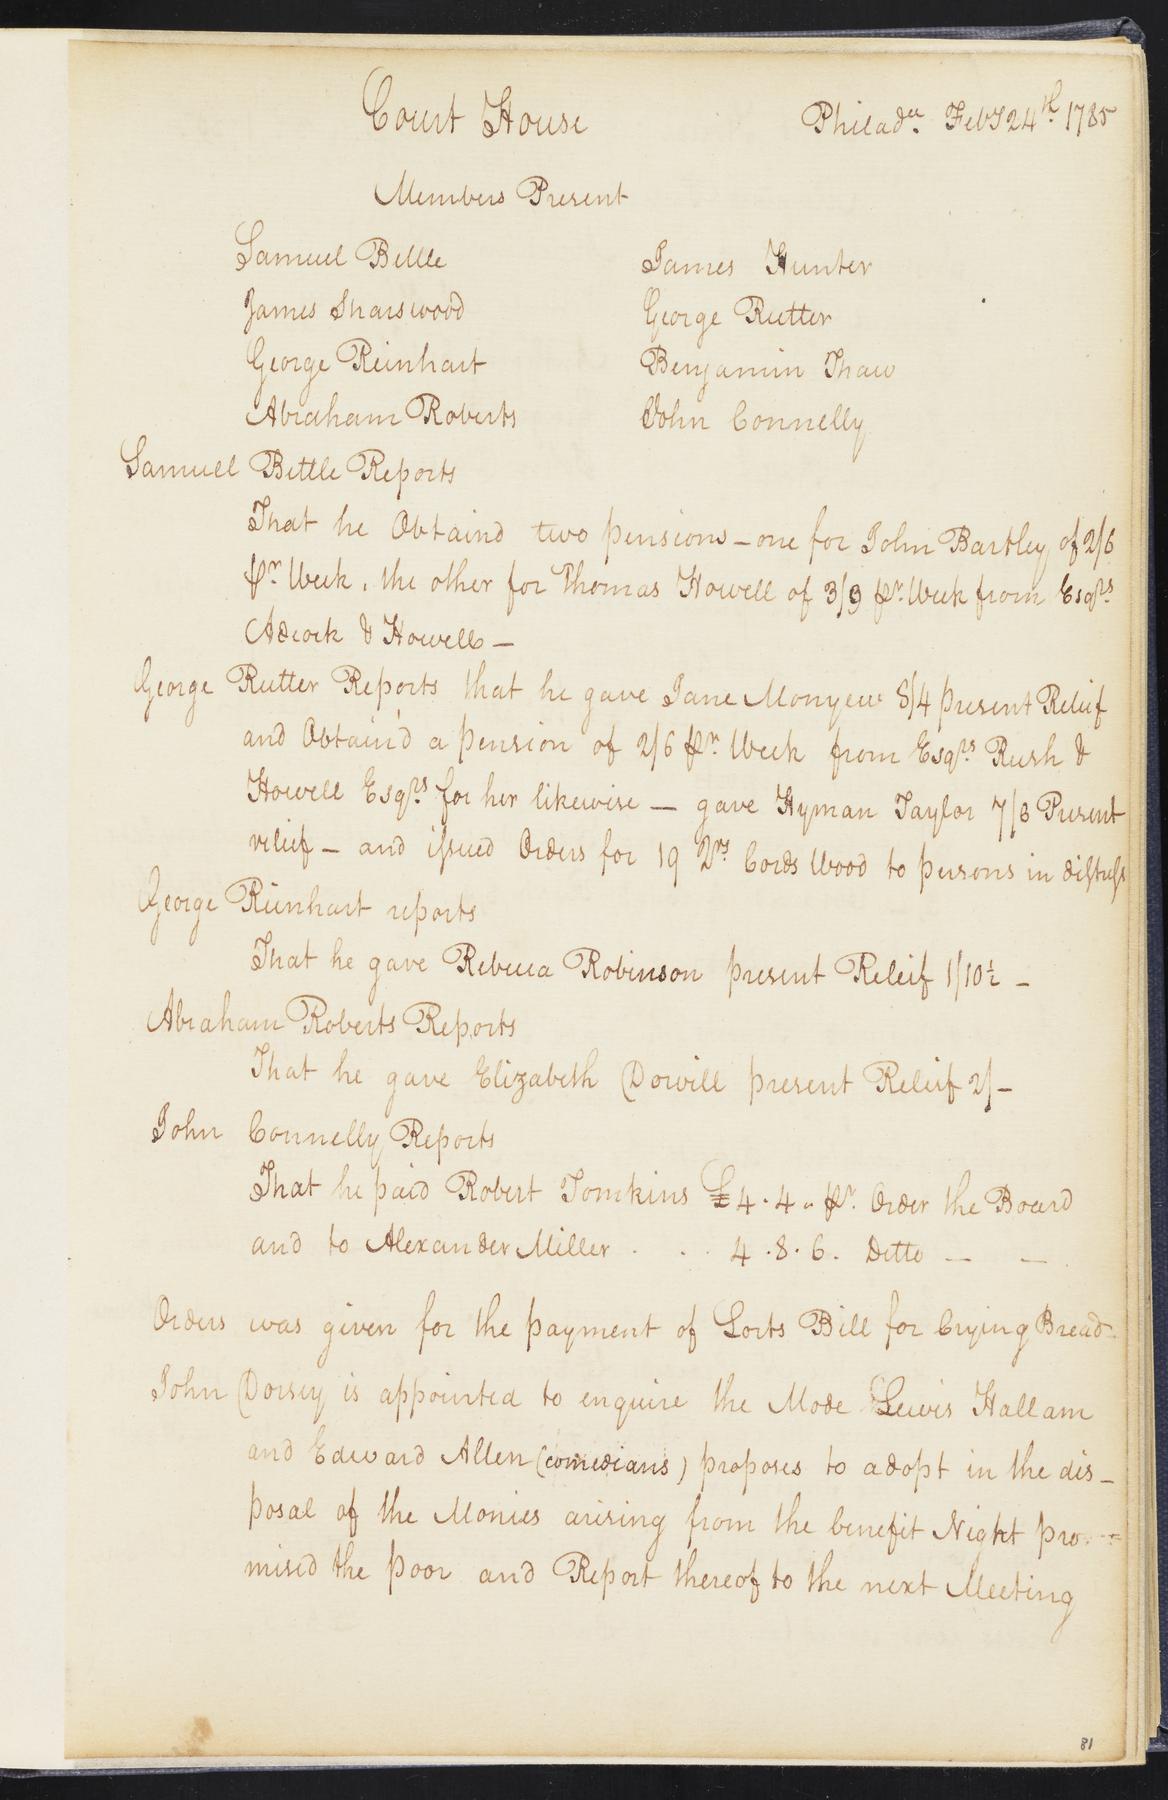 Court House Philada. Feby 24th. 1785
Members Present
Samuel Bettle James Hunter
James Sharswood George Rutter
George Reinhart Benjamin Thaw
Abraham Roberts John Connelly
Samuel Bettle Reports
That he Obtaind two pensions - one for John Bartley of 2/6
pr. Week, the other for Thomas Howell of 3/9 pr. Week from Esqrs.
Adcock & Howell -
George Rutter Reports that he gave Jane 8/4 present Relief
and Obtain'd a pension of 2/6 pr. Week from Esqrs. Rush &
Howell Esqrs. for her likewise - gave Hyman Taylor 7/6 Present
relief - and issued Orders for 19 Qrs Cords Wood to persons in distress
George Reinhart reports
That he gave Rebecca Robinson present Releif 1/10½ -
Abraham Roberts Reports
That he gave Elizabeth Dowill present Releif 2/-
John Connelly Reports
That he paid Robert Tomkins £4.4.. pr. Order the Board
and to Alexander Miller . . . 4.8.6. Ditto - -
Orders was given for the payment of Lorts Bill for Crying Bread
John Dorsey is appointed to enquire the Mode Lewis Hallam
and Edward Allen (comedians) proposes to adopt in the dis-
posal of the Monies arising from the benefit Night pro-
mised the poor and Report thereof to the next Meeting
81